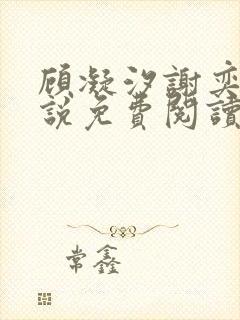 顾凝汐謝奕
說免費閱讀
常鑫